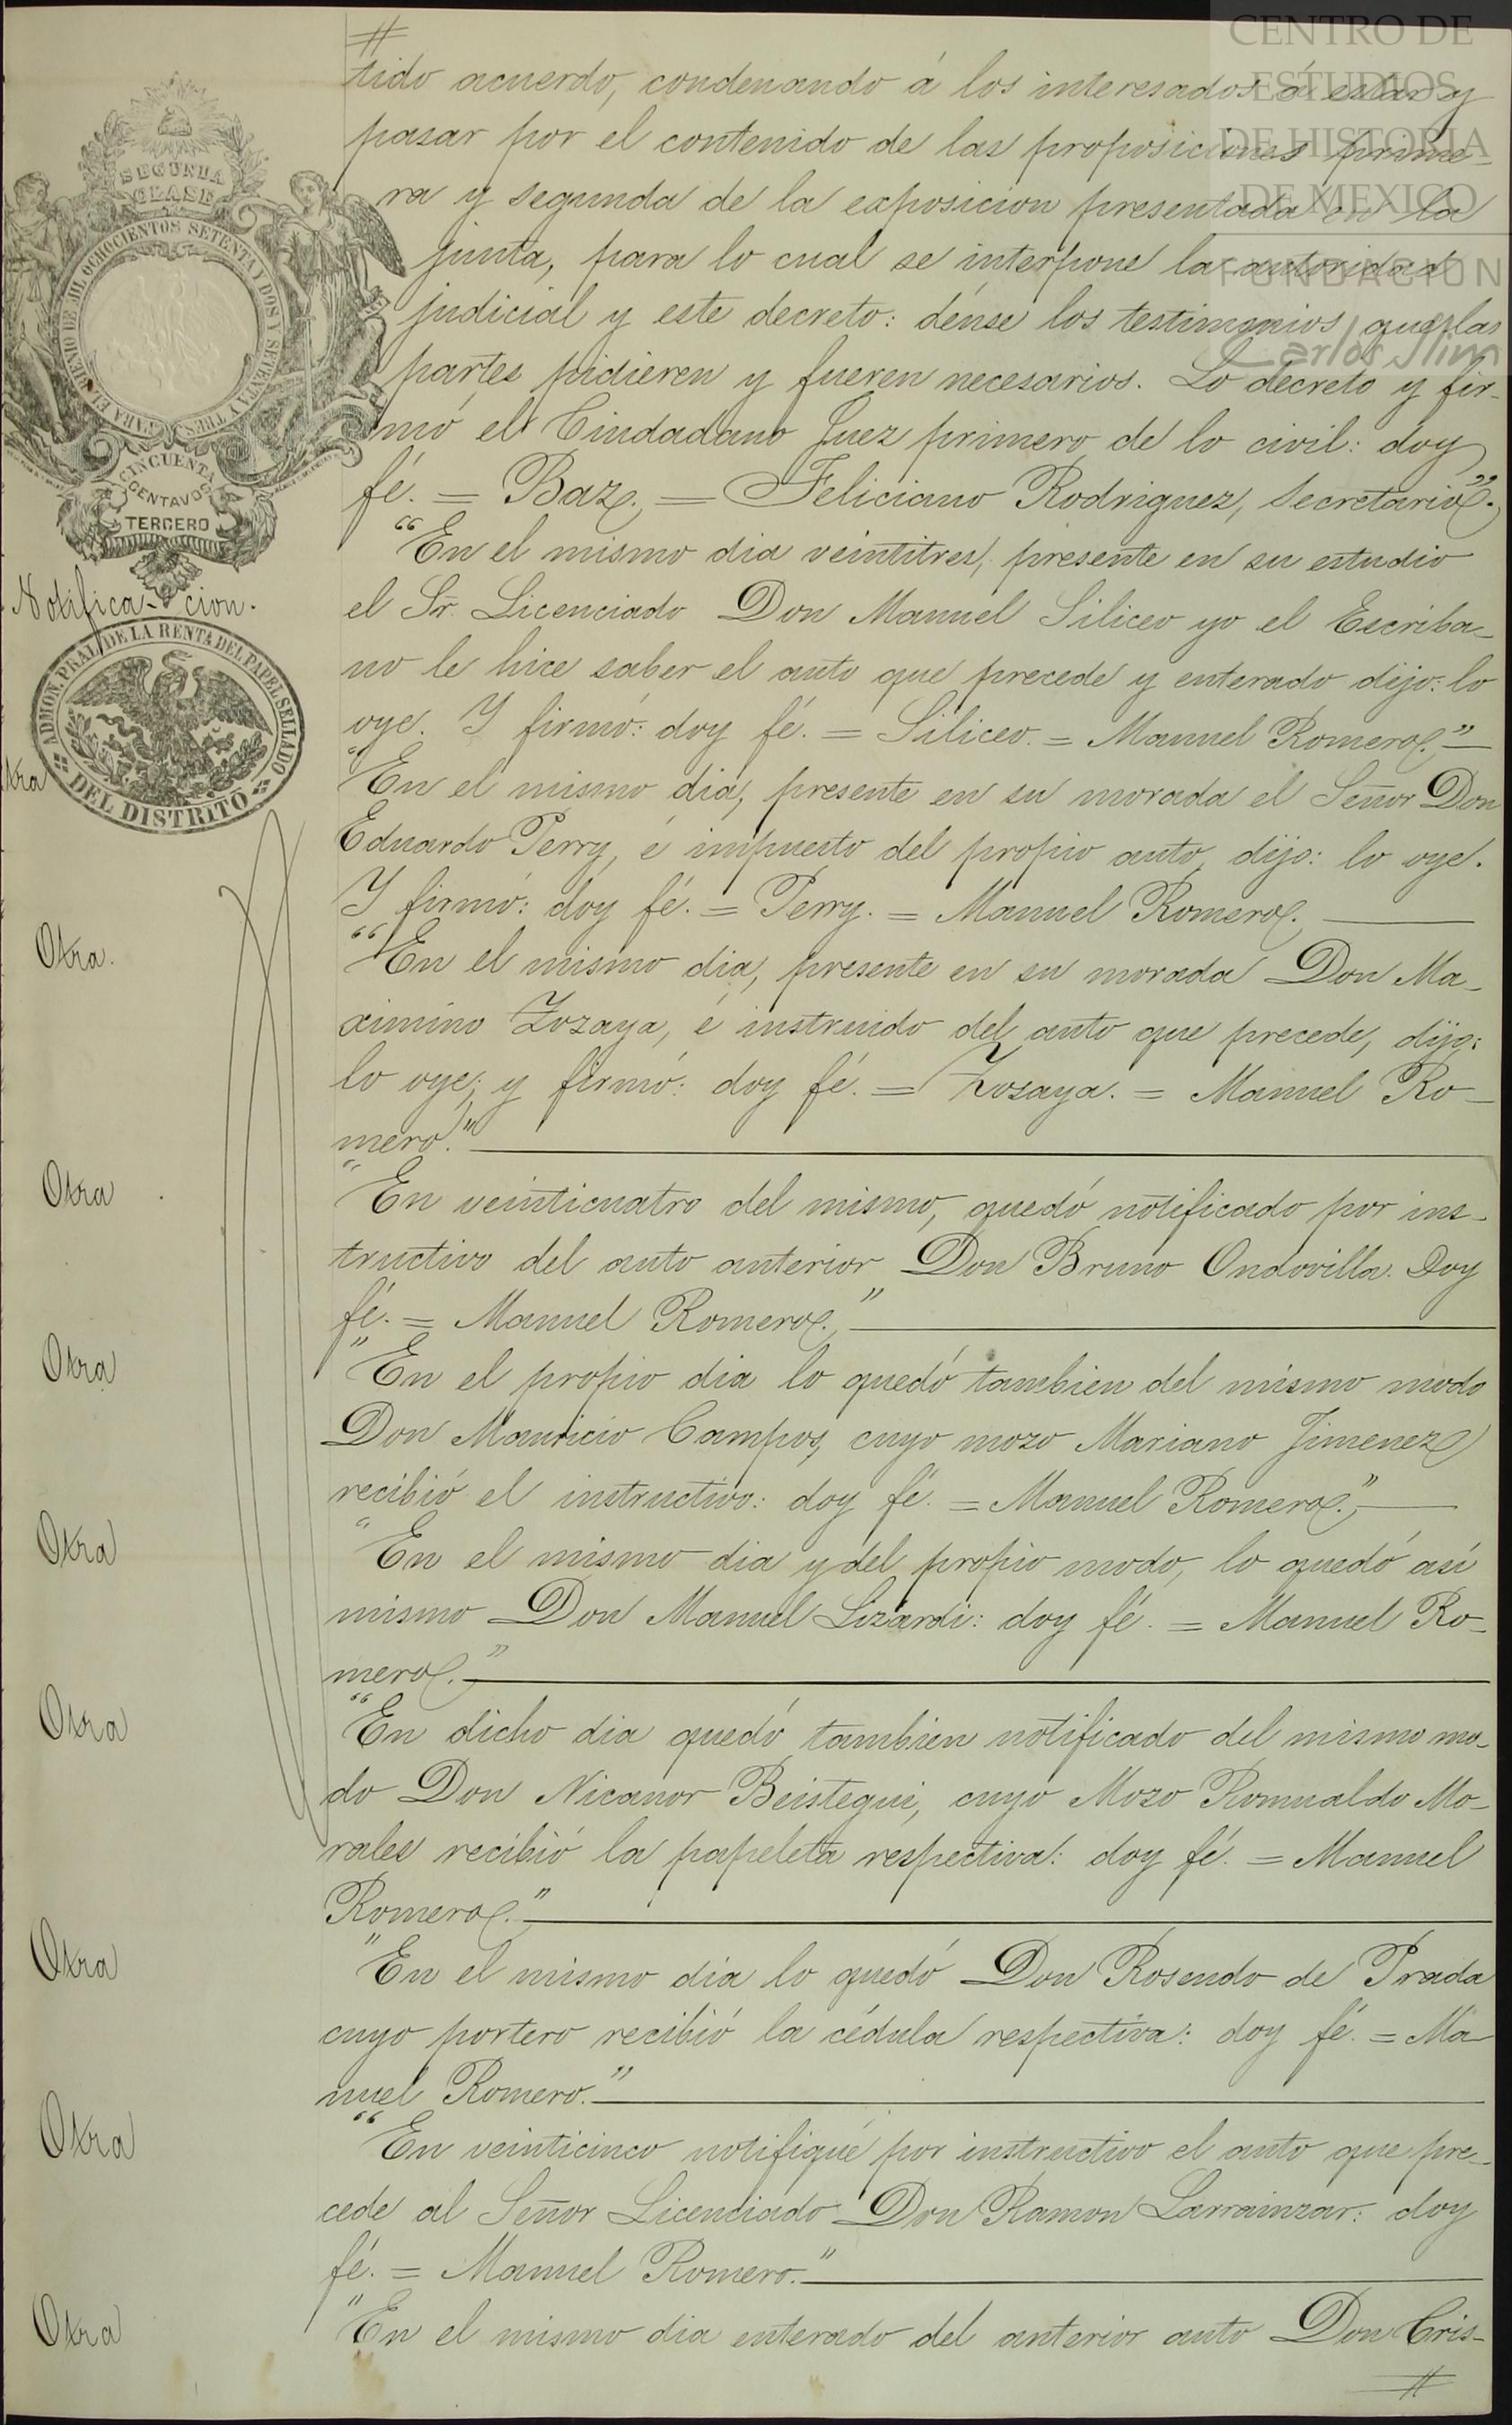 CENTRO DE
ESTUDIOS
DE HISTORIA
DE MEXICO
FUNDACION
Carlos Slim
SEGUNDA
CLASE
PARA EL BIENIO DE MIL OCHOCIENTOS SETENTA Y DOS Y SETENTA Y TRES
CINCUENTA
CENTAVOS
TERCERO
tido acuerdo, condenando á los interesados á estar y
pasar por el contenido de las proposiciones prime-
ra y segunda de la exposicion presentada en la
junta, para lo cual se interpone la autoridad
judicial y este decreto: dénse los testimonios que las
partes pidieren y fueren necesarios. Lo decretó y fir-
mó el Ciudadano Juez primero de lo civil: doy
fé. = Baz. = Feliciano Rodriguez, Secretario."
Notifica-cion.
"En el mismo dia veintitres, presente en su estudio
el Sr. Licenciado Don Manuel Siliceo yo el Escriba-
no le hice saber el auto que precede y enterado dijo: lo
oye. Y firmó: doy fé. = Siliceo. = Manuel Romero."
ADMON. PRAL. DE LA RENTA DEL PAPEL SELLADO
DEL DISTRITO
tra
"En el mismo dia, presente en su morada el Señor Don
Eduardo Perry, é impuesto del propio auto, dijo: lo oye.
Y firmó: doy fé. = Perry. = Manuel Romero.
Otra.
"En el mismo dia, presente en su morada Don Ma-
ximino Zozaya, é instruido del auto que precede, dijo:
lo oye; y firmó: doy fé. = Zozaya. = Manuel Ro-
mero."
Otra
"En veinticuatro del mismo, quedó notificado por ins-
tructivo del auto anterior Don Bruno Ondovilla. Doy
fé. = Manuel Romero."
Otra
"En el propio dia lo quedó tambien del mismo modo
Don Mauricio Campos, cuyo mozo Mariano Jimenez
recibió el instructivo: doy fé. = Manuel Romero."
Otra
"En el mismo dia y del propio modo, lo quedó así
mismo Don Manuel Lizardi: doy fé. = Manuel Ro-
mero."
Otra
"En dicho dia quedó tambien notificado del mismo mo-
do Don Nicanor Beistegui, cuyo Mozo Romualdo Mo-
rales recibió la papeleta respectiva: doy fé. = Manuel
Romero."
Otra
"En el mismo dia lo quedó Don Rosendo de Prada
cuyo portero recibió la cédula respectiva: doy fé. = Ma
nuel Romero."
Otra
"En veinticinco notifiqué por instructivo el auto que pre-
cede al Señor Licenciado Don Ramon Larrainzar: doy
fé. = Manuel Romero."
Otra
"En el mismo dia enterado del anterior auto Don Cris-